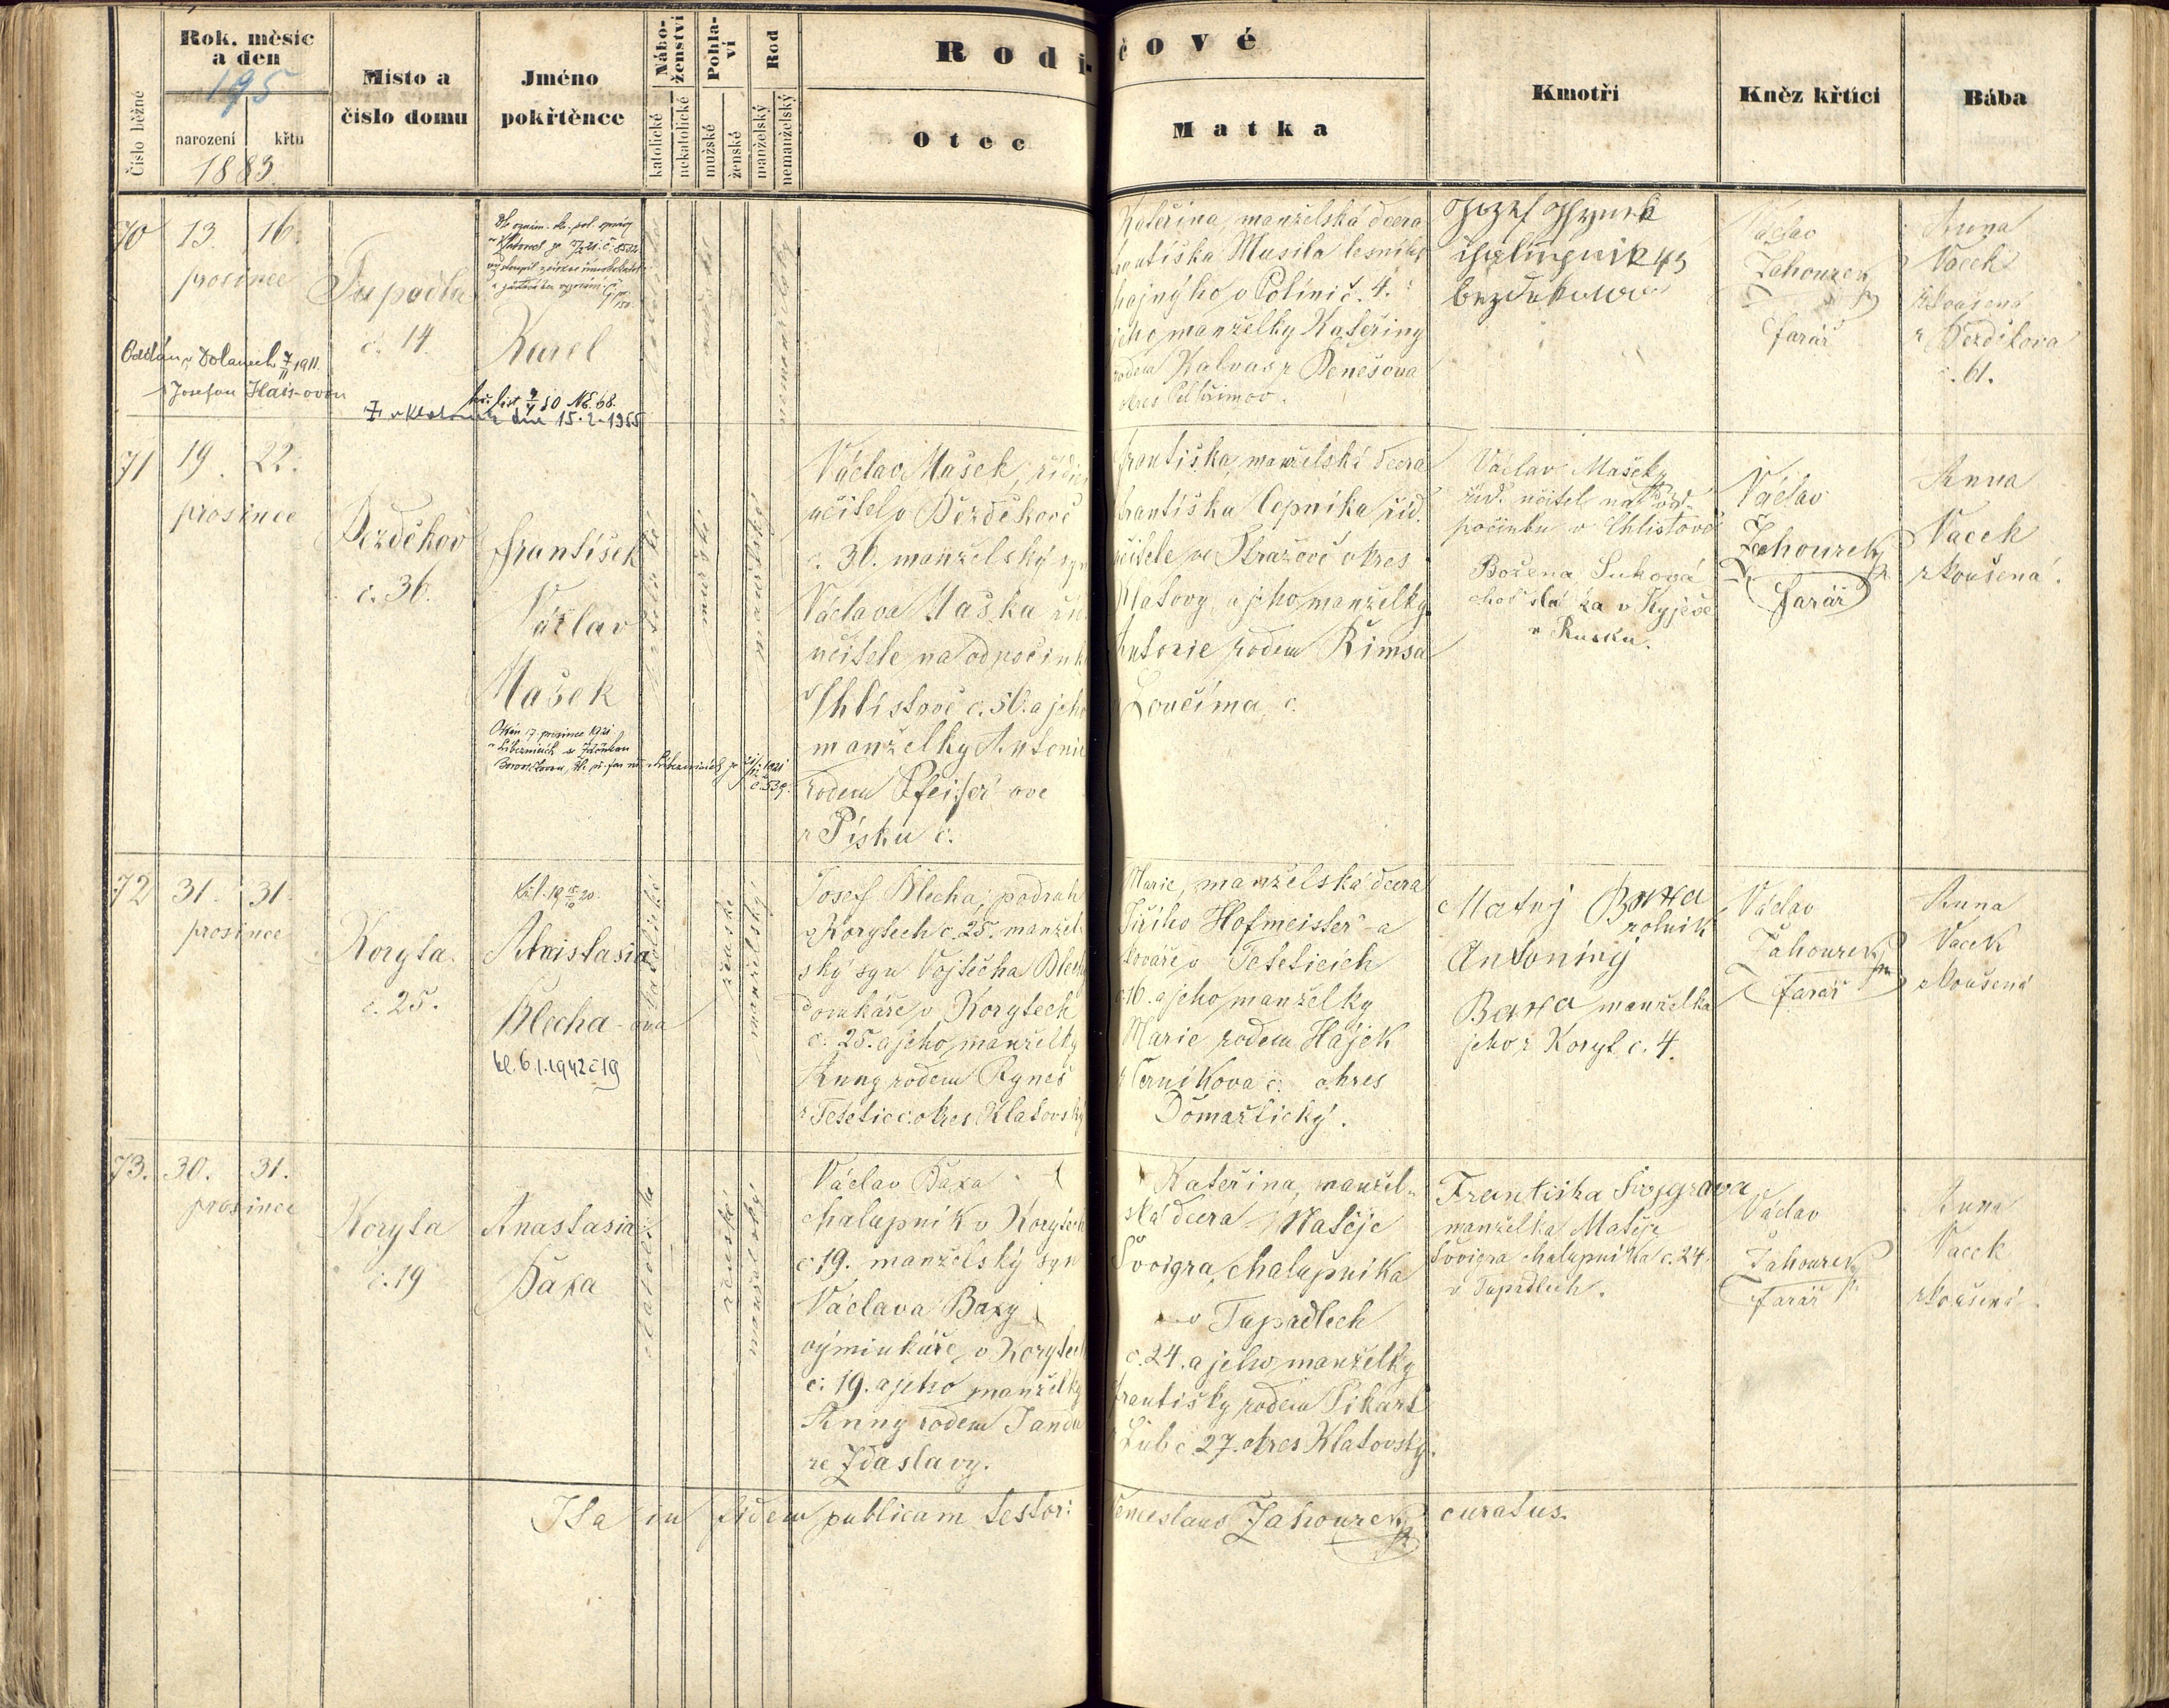 Rok, měsíc
a den
195
narození křtu
1883.
Číslo běžné
Místo a
číslo domu
Jméno
pokřtěnce
Nábo-
ženství
katolické
nekatolické
Pohla-
ví
mužské
ženské
Rod
manželský
nemanželský
Rodi-
čové
Otec
Matka
Kmotři
Kněz křtící
Bába
70 13. 16.
prosince
Tupadla
č. 14.
Karel
Oddán v Dolanech 7/II 1911
s Josefou Hais-ovou
kř. list 50 NE. 68.
v Klatovech dne 15.2.1955
katolické
mužské
nemanželský
Kateřina, manželská dcera
Františka Musila lesního
hajného v Políni č. 4.
jeho manželky Kateřiny
rodem Kalvas z Benešova
okres Pelhřimov.
Jozef
43
Václav
Zahourek
farář
Anna
Vacek
zkoušená
z Bezděkova
č. 61.
71 19. 22.
prosince
Bezděkov
č. 36.
František
Václav
Mašek
Oddán 17. prosince 1921
v Libeznicích
č. 539.
katolické
mužské
manželský
Václav Mašek, řídící
učitel v Bezděkově
č. 36. manželský syn
Václava Maška říd.
učitele na odpočinku
v Chlistově č. 50. a jeho
manželky Antonie
rodem Pfeifer-ove
z Písku č.
Františka, manželská dcera
Františka Čepníka říd.
učitele ve Strážově okres
Klatovy a jeho manželky
Antonie rodem Římsa
z Loučíma č.
Václav Mašek
říd. učitel na od-
počinku v Chlistově
Božena Suková
v Kyjevě
v Rusku.
Václav
Zahourek
farář
Anna
Vacek
zkoušená.
72 31. 31.
prosince
Koryta.
č. 25.
Anastasia
Blecha-ova
kl. 6.1.1942 č 19
katolické
ženské
manželský
Josef Blecha, podruh
v Korytech č. 25. manžel-
ský syn Vojtěcha Blechy
domkáře v Korytech
č. 25. a jeho manželky
Anny rodem Ryneš
z Tetětic č. okres Klatovský
Marie, manželská dcera
Jiřího Hofmeister-a
kováře v Tetěticích
č. 16. a jeho manželky
Marie rodem Hájek
z Černíkova č. okres
Domažlický.
Matej Baxa
rolník
Antoniny
Baxa manželka
jeho z Koryt č. 4.
Václav
Zahourek
farář
Anna
Vacek
zkoušená
73. 30. 31.
prosince
Koryta
č. 19
Anastasia
Baxa
katolické
ženské
manželský
Václav Baxa
chalupník v Korytech
č 19. manželský syn
Václava Baxy
výminkáře v Korytech
č. 19. a jeho manželky
Anny rodem Janda
ze Zdaslavy.
Kateřina, manžel-
ská dcera Matěje
Švoigra, chalupníka
v Tupadlech
č. 24. a jeho manželky
Františky rodem Pikart
z Lub č. 27. okres Klatovský.
Frantiska
manželka Matěje
Švoigra chalupníka č. 24.
v Tupadlech.
Václav
Zahourek
farář
Anna
Vacek
zkoušená.
Ita in fidem publicam testor: Venceslaus Zahourek curatus.